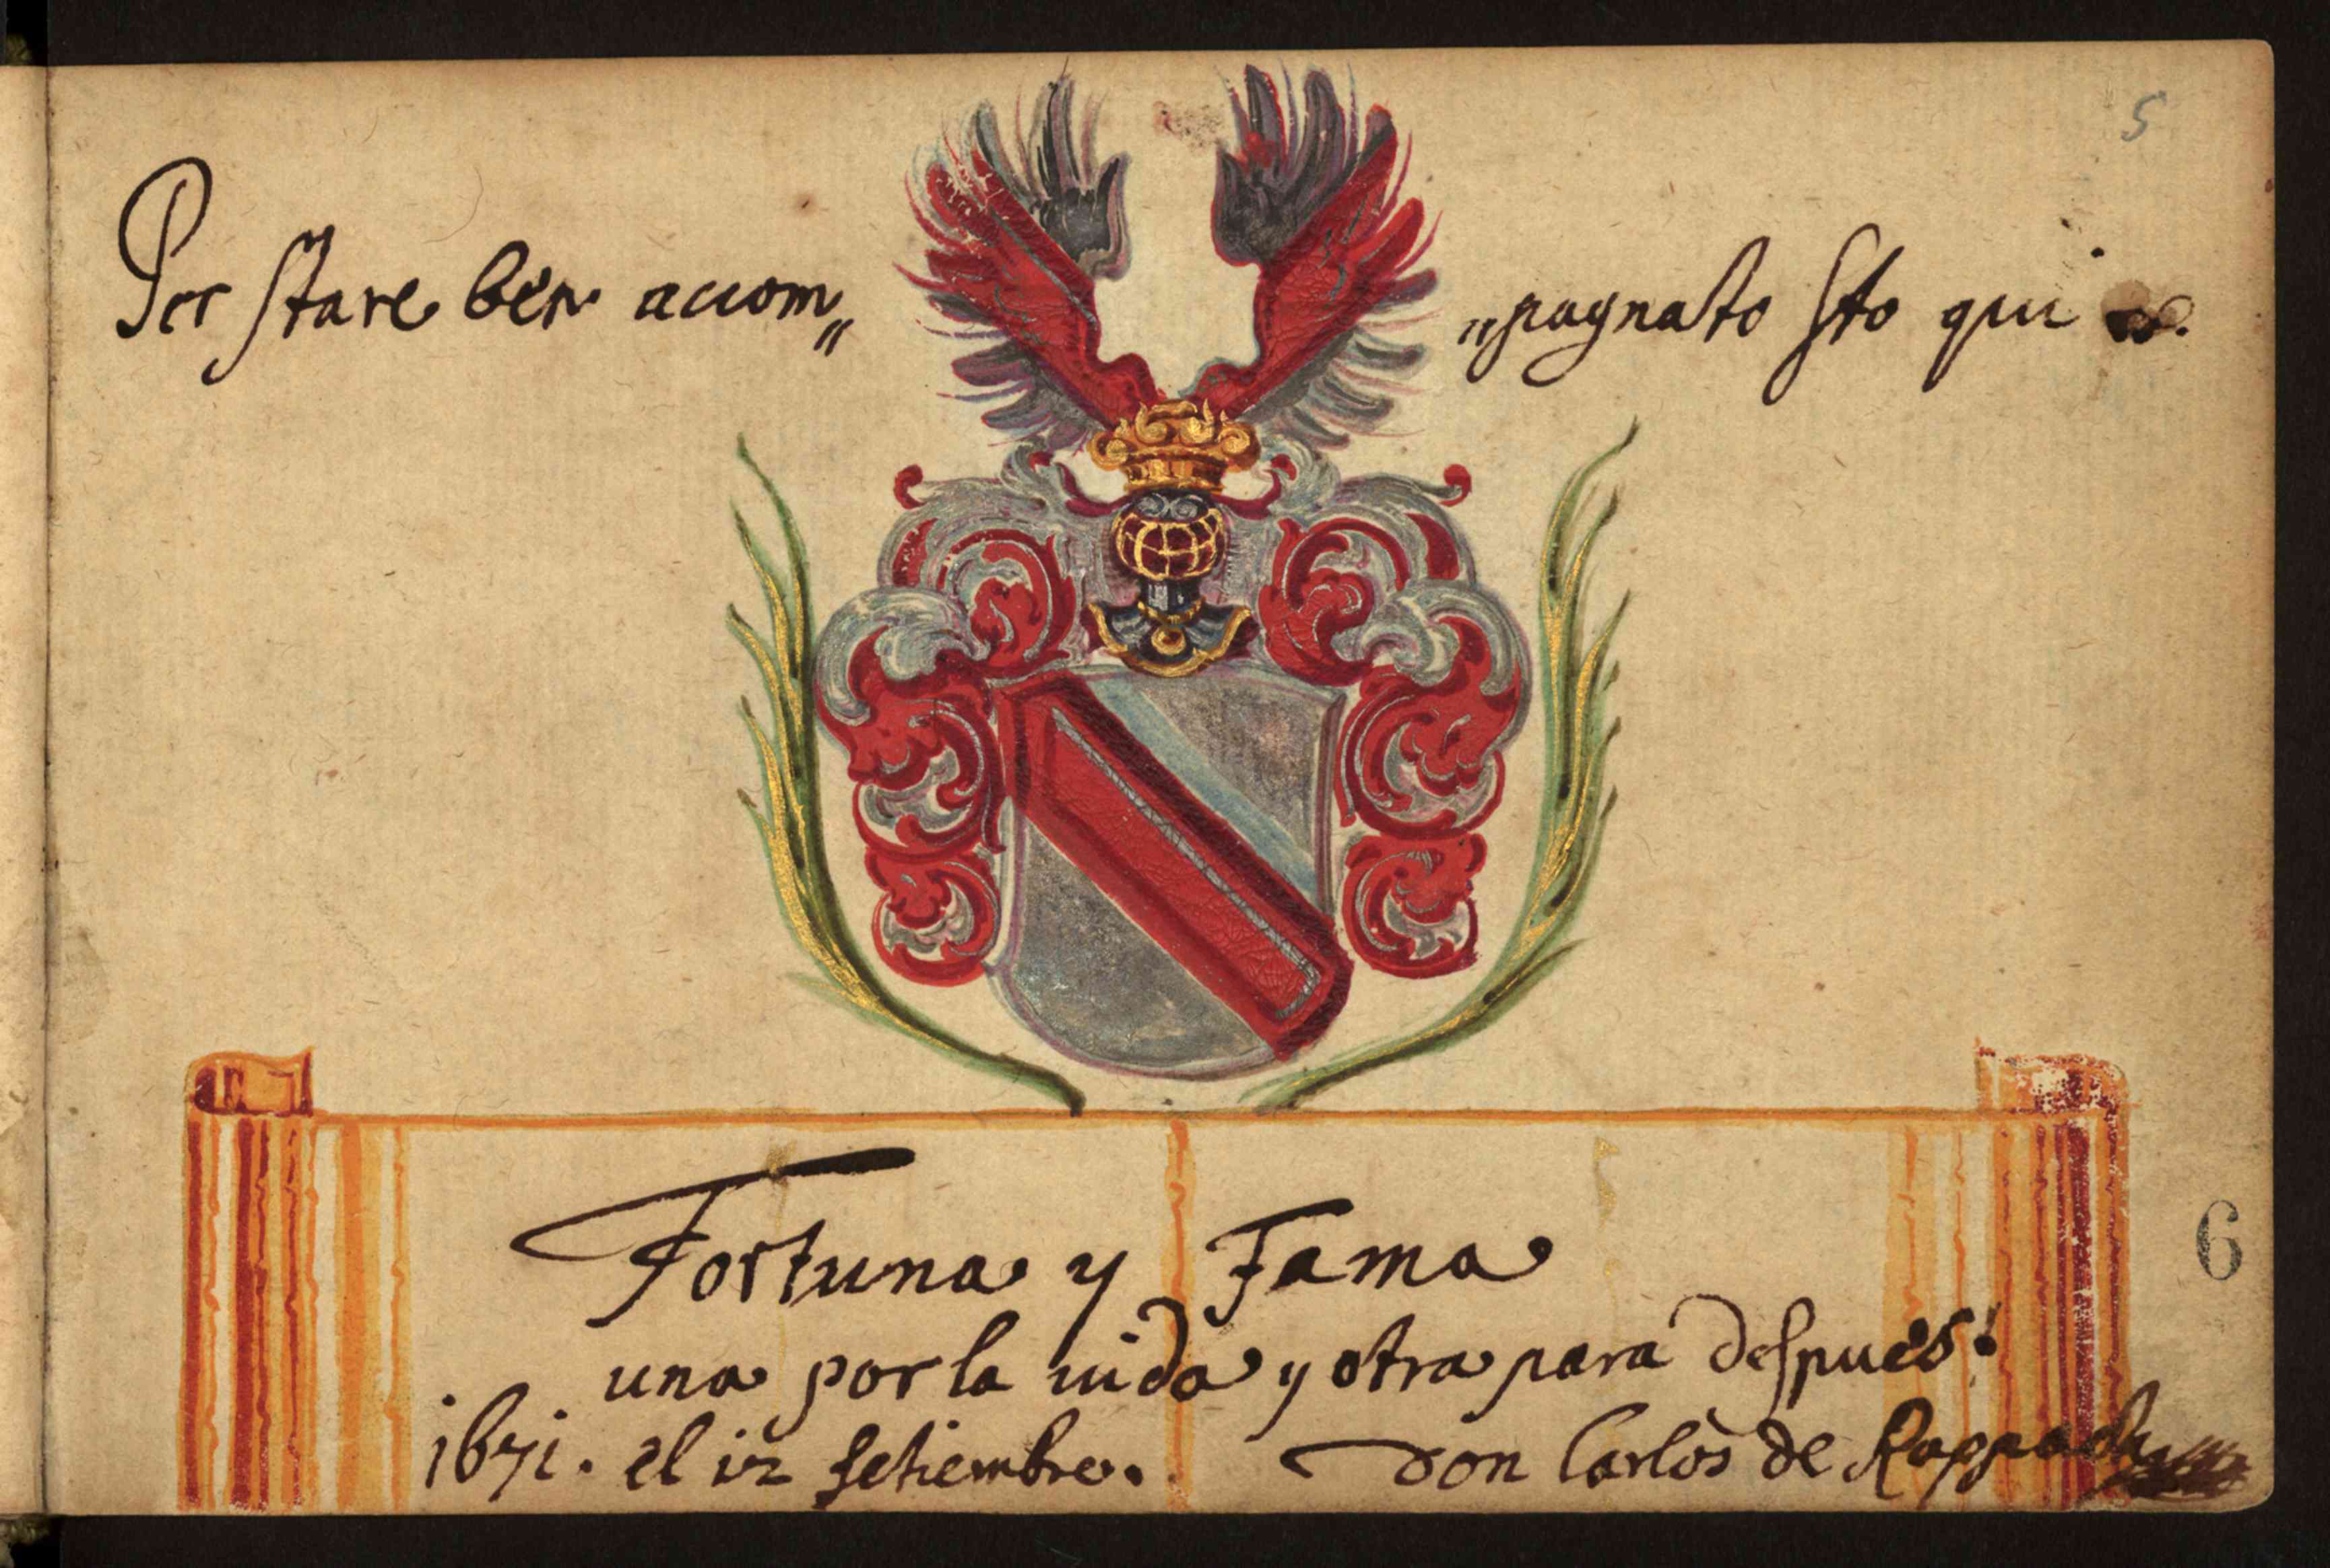 5
Per stare ben accom„ „pagnato sto qui
Fortuna y Fama
una por la vida y otra para despues!
1671. el 12 setiembre. Don Carlos de Rappach
6